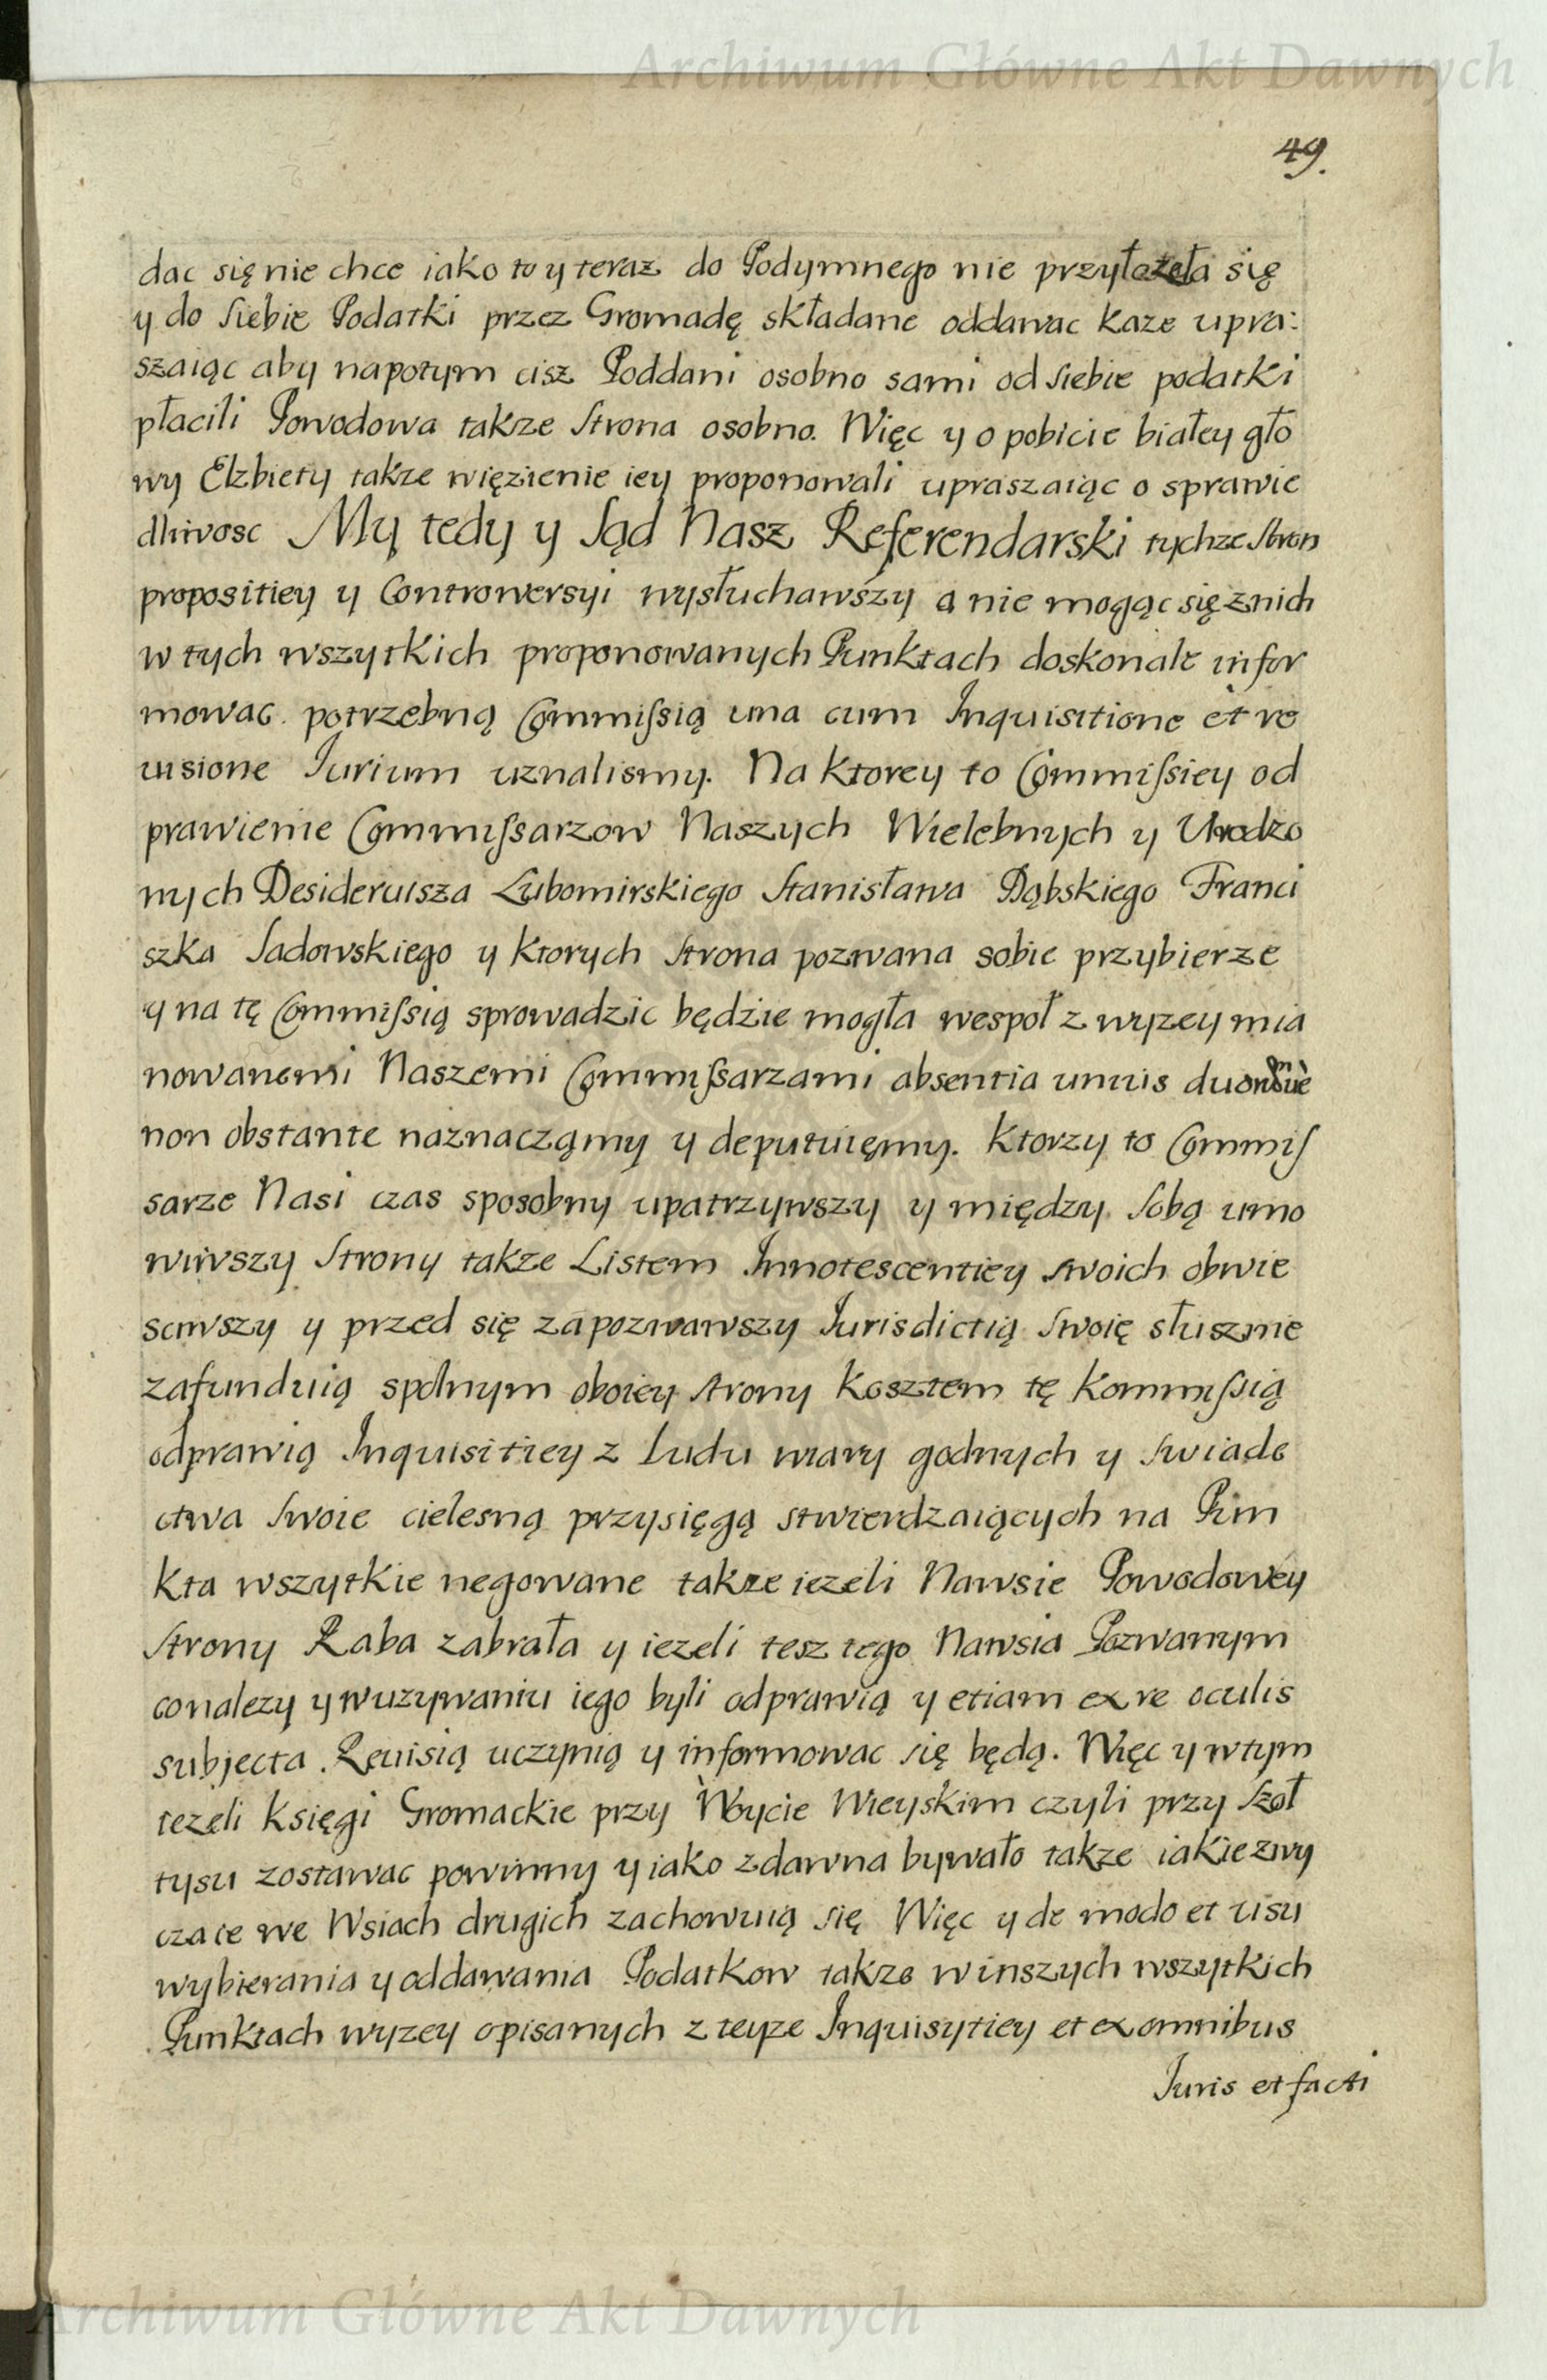 Archiwum Główne Akt Dawnych
49.
dac się nie chce iako to y teraz do Podymnego nie przyłozeła się
y do siebie Podatki przez Gromadę składane oddawac kaze upra:
szaiąc aby napotym cisz Poddani osobno sami od siebie podatki
płacili Powodowa takze Strona osobno. Więc y o pobicie białey gło
wy Elzbiety takze więzienie iey proponowali upraszaiąc o sprawie
dliwosc My tedy y Sąd Nasz Referendarski tychze Stron
propositiey y Controwersyi wysłuchawszy a nie mogąc się znich
w tych wszytkich proponowanych Punktach doskonale infor
mowac potrzebną Commissią una cum Inquisitione et re
uisione Iurium uznalismy. Na ktorey to Commissiey od
prawienie Commissarzow Naszych Wielebnych y Urodzo
nych Desideruisza Lubomirskiego Stanisława Dąbskiego Franci
szka Sadowskiego y ktorych Strona pozwana sobie przybierze
y na tę Commissią sprowadzic będzie mogła wespoł z wyzey mia
nowanemi Naszemi Commissarzami absentia unius duorumue
non obstante naznaczamy y deputuięmy. Ktorzy to Commis
sarze Nasi czas sposobny upatrzywszy y między sobą umo
wiwszy Strony takze Listem Innotescentiey swoich obwie
sciwszy y przed się zapozwawszy Iurisdictią swoię słusznie
zafunduią spolnym oboiey strony kosztem tę kommissią
odprawią Inquisitiey z Ludu wiary godnych y swiade
ctwa swoie cielesną przysięgą stwierdzaiących na Pun
kta wszytkie negowane takze iezeli Nawsie Powodowey
Strony Raba zabrała y iezeli tesz tego Nawsia Pozwanym
co nalezy y wuzywaniu iego byli odprawią y etiam ex re oculis
subjecta. Reuisią uczynią y informowac się będą. Więc y wtym
iezeli Księgi Gromackie przy Woycie Wieyskim czyli przy Szoł
tysu zostawac powinny y iako zdawna bywało takze iakie zwy
czaie we Wsiach drugich zachowuią się Więc y de modo et usu
wybierania y oddawania Podatkow takze w inszych wszytkich
Punktach wyzey opisanych z teyze Inquisytiey et ex omnibus
Iuris et facti
Archiwum Główne Akt Dawnych